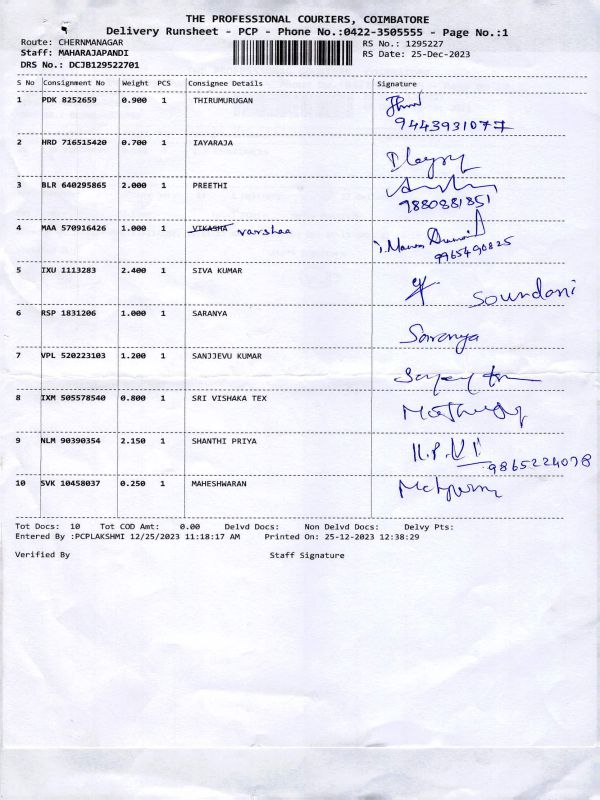 THE PROFESSIONAL COURIERS, COIMBATORE
Delivery Runsheet - PCP - Phone No.:0422-3505555 - Page No.:1
Route: CHERNMANAGAR RS No.: 1295227
Staff: MAHARAJAPANDI RS Date: 25-Dec-2023
DRS No.: DCJB129522701
S No Consignment No Weight PCS Consignee Details Signature
1 PDK 8252659 0.900 1 THIRUMURUGAN
9443931077
2 HRD 716515420 0.700 1 IAYARAJA
3 BLR 640295865 2.000 1 PREETHI
9880881851
4 MAA 570916426 1.000 1 VIKASHA varshaa
9965490825
5 IXU 1113283 2.400 1 SIVA KUMAR Soundani
6 RSP 1831206 1.000 1 SARANYA
Saranya
7 VPL 520223103 1.200 1 SANJJEVU KUMAR
8 IXM 505578540 0.800 1 SRI VISHAKA TEX
9 NLM 90390354 2.150 1 SHANTHI PRIYA
9865224078
10 SVK 10458037 0.250 1 MAHESHWARAN
Tot Docs: 10 Tot COD Amt: 0.00 Delvd Docs: Non Delvd Docs: Delvy Pts:
Entered By :PCPLAKSHMI 12/25/2023 11:18:17 AM Printed On: 25-12-2023 12:38:29
Verified By Staff Signature